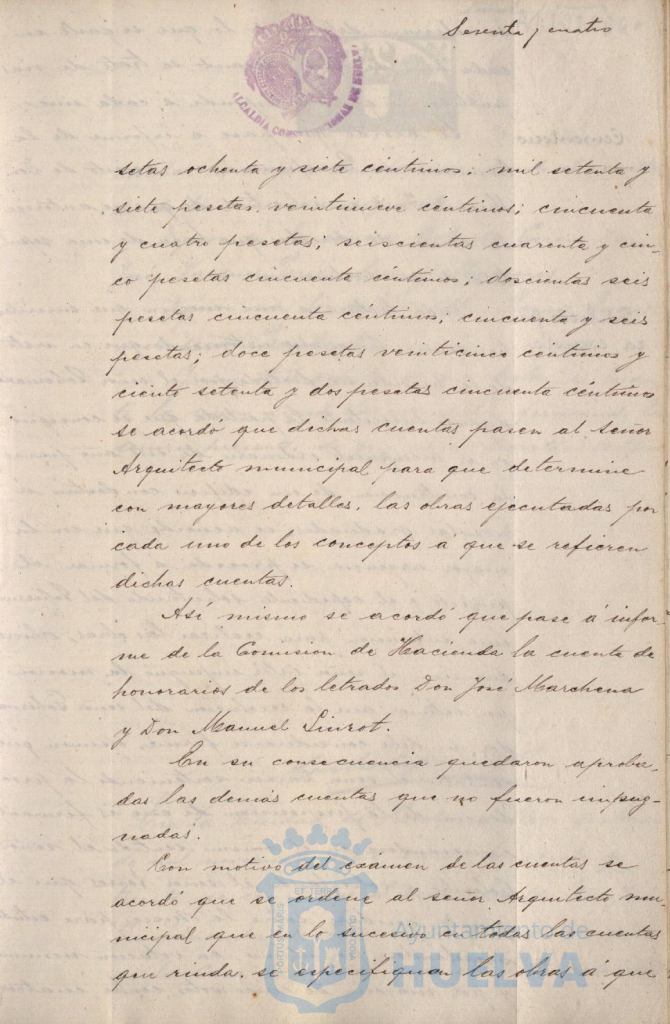 Sesenta y cuatro
ALCALDIA CONSTITUCIONAL DE HUELVA
setas ochenta y siete céntimos; mil setenta y
siete pesetas, veintinueve céntimos; cincuenta
y cuatro pesetas; seiscientas cuarenta y cin-
co pesetas cincuenta céntimos; doscientas seis
pesetas cincuenta céntimos; cincuenta y seis
pesetas; doce pesetas veinticinco céntimos y
ciento setenta y dos pesetas cincuenta céntimos
se acordó que dichas cuentas pasen al señor
Arquitecto municipal para que determine
con mayores detalles, las obras ejecutadas por
cada uno de los conceptos á que se refieren
dichas cuentas.
Así mismo se acordó que pase á infor-
me de la Comision de Hacienda la cuenta de
honorarios de los letrados Don José Marchena
y Don Manuel Siurot.
En su consecuencia quedaron aproba-
das las demás cuentas que no fueron impug-
nadas.
Con motivo del exámen de las cuentas se
acordó que se ordene al señor Arquitecto mu-
nicipal que en lo sucesivo en todas las cuentas
que rinda, se especifiquen las obras á que
PORTUS MARIS ET TERRE CUSTODIA
Ayuntamiento de
HUELVA